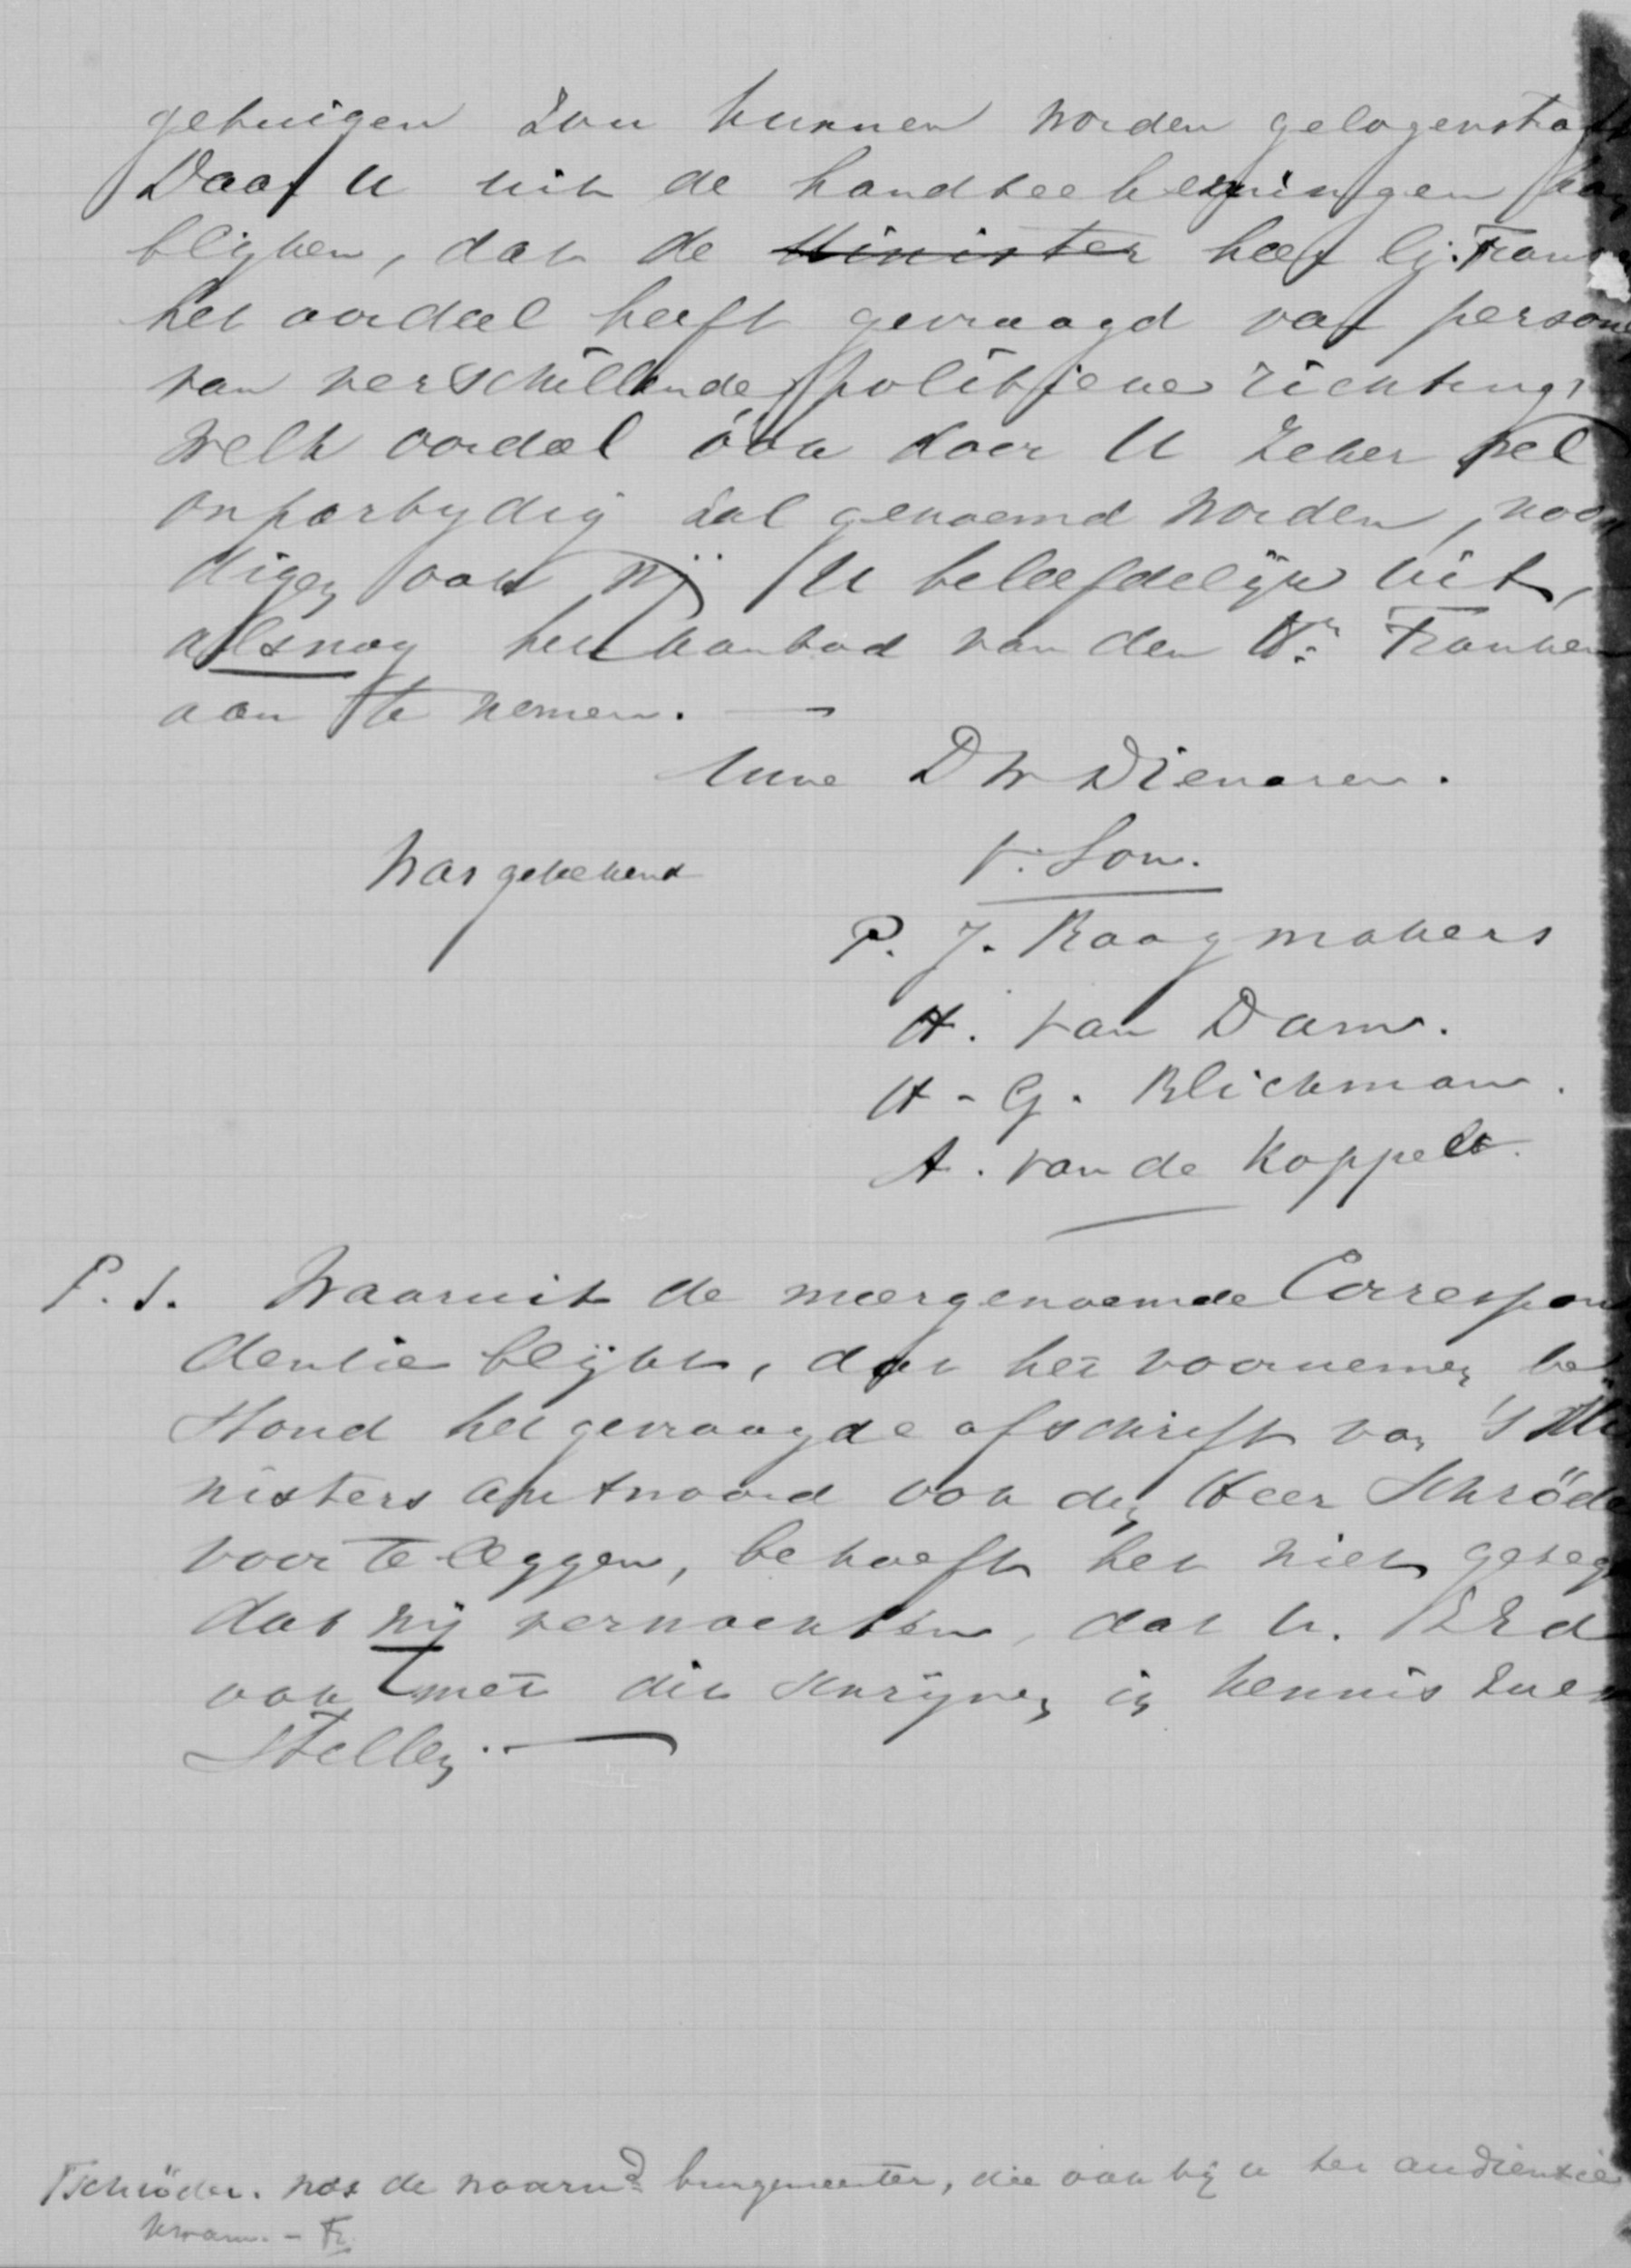 getuigen zou kunnen worden gelogenstraft
Daar U uit de handteekeningen kan
blijken, dat de Minister heer G. Franken
het oordeel heeft gevraagd van persone
van verschillende politieke richting,
welk oordeel ook door U zeker wel
onpartydig zal genoemd worden, noo
digen ook wij U beleefdelijk uit,
alsnog het aanbod van den Hr. Franken
aan te nemen. —
Uwe DW Dienaren.
Was geteekend V. Son.
P. J. Raaymakers
H. van Dam.
H. G. Blickman.
A. van de Koppel.
P.S. Waaruit de meergenoemde Correspon
dentie blijkt, dat het voornemen be
stond het gevraagde afschrift van 's Mi
nisters antwoord ook den Heer Schröde
voor te leggen, behoeft het niet gezeg
dat wij verwachten, dat U. EEd
ook met dit schrijven in kennis zuen
stellen. —
Schröder. was de waarnd burgemeester, die ook bij u ter audientie
kwam. - Fr.